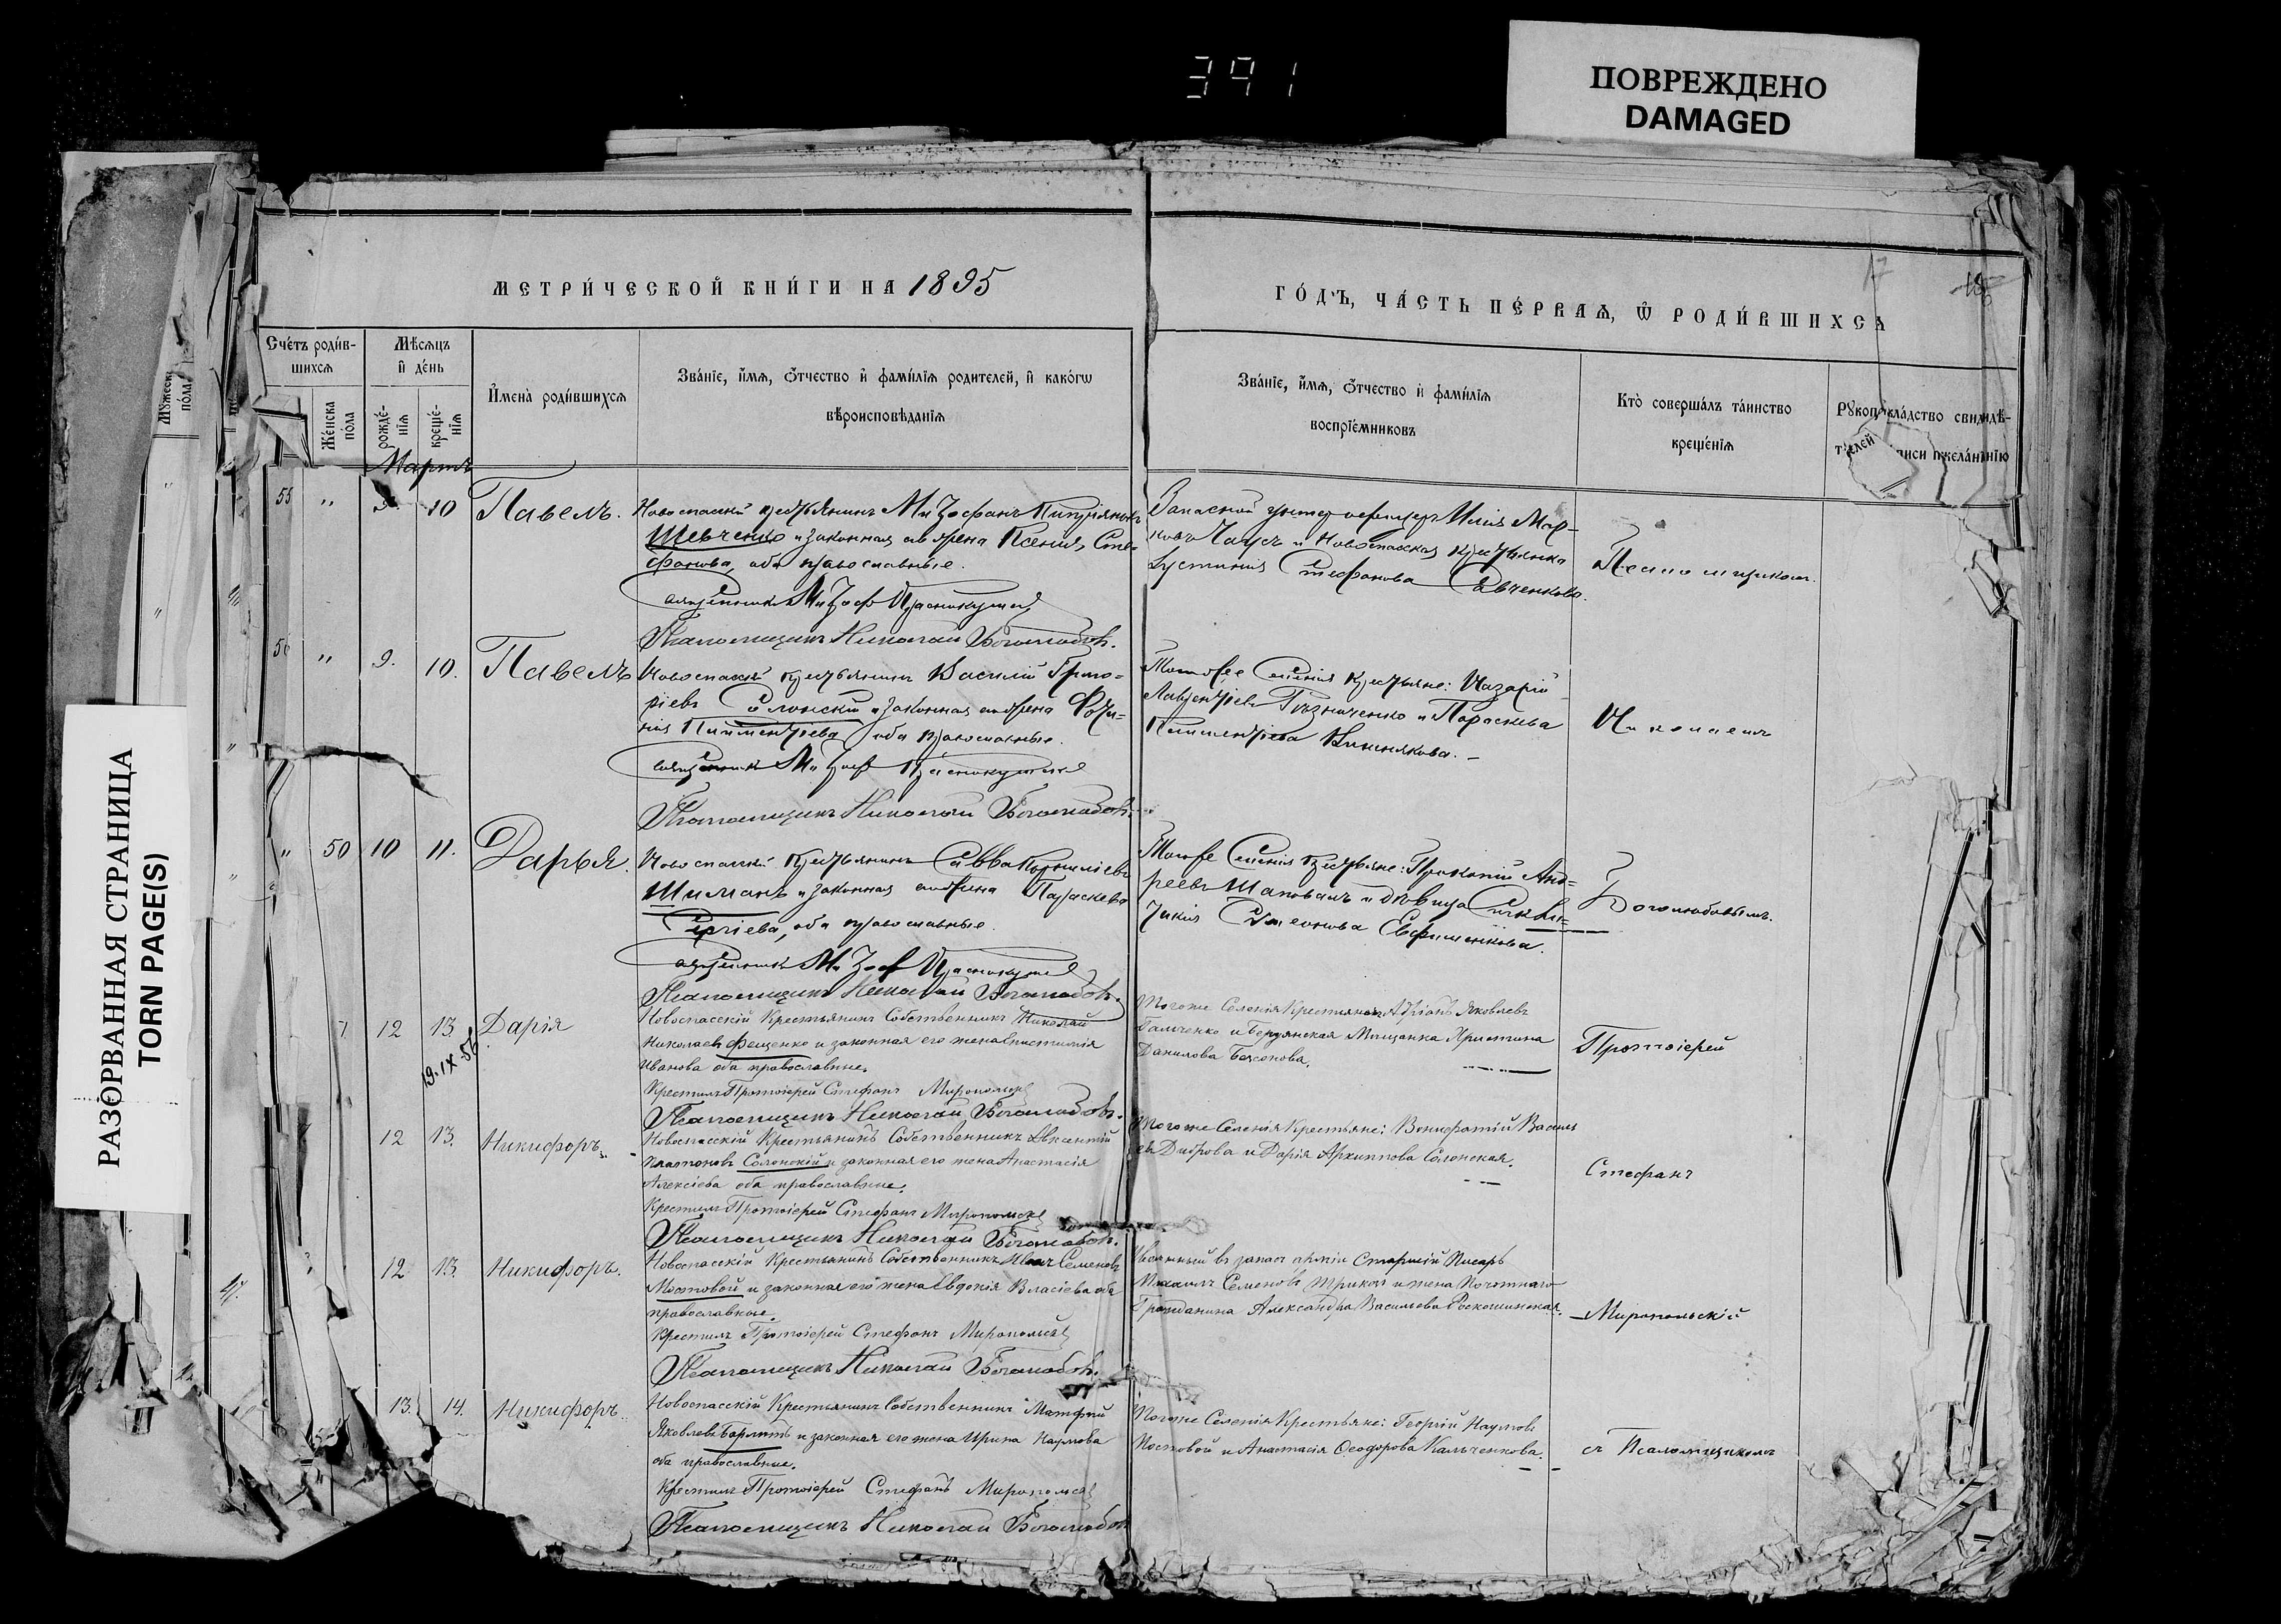 391
ПОВРЕЖДЕНО
DAMAGED
РАЗОРВАННАЯ СТРАНИЦА
TORN PAGE(S)
МЕТРИ́ЧЕСКОЙ КНИ́ГИ НА 1895
ГО́ДЪ, ЧА́СТЬ ПЕ́РВАѦ, Ѿ РОДИ́ВШИХСѦ
17
Сче́тъ роди́в-
шихсѧ
Мѣсѧцъ
и҆ де́нь
Мꙋ́жеск
по́ла
Же́нска
по́ла
рожде́-
нїѧ
креще́-
нїѧ
И҆мена̀ роди́вшихсѧ
Зва́нїе, и҆́мѧ, ѻ҆́тчество и҆ фами́лїѧ родителей, и҆ како́гѡ
вѣроисповѣ́данїѧ
Зва́нїе, и҆́мѧ, ѻ҆́тчество и҆ фами́лїѧ
воспрїе́мниковъ
Кто̀ соверша́лъ та́инство
креще́нїѧ
Рꙋкоприкла́дство свидѣ́-
телей писи по жела́нїю
Мартъ
55 " 9 10 Павелъ.
Новоспасскій крестьянинъ Митрофанъ Кипріановъ
Шевченко и законная его жена Ксенія Сте-
фанова, оба православные.
Священникъ Митроф Краснокутскій
Псаломщикъ Николай Боголюбовъ.
Запасной унтер офицеръ Илія Мар-
ковъ Чаусъ и Новоспасская крестьянка
Іустинія Стефанова Савченкова.
Псаломщикомъ
56 " 9. 10. Павелъ
Новоспасскій крестьянинъ Василій Григо-
ріевъ Солонскій и законная его жена Фоти-
нія Пиментіева оба православные.
Священникъ Митроф Краснокутскій
Псаломщикъ Николай Боголюбовъ.
Того же Селенія крестьяне: Назарій
Лаврентіевъ Грѣзниченко и Параскева
Николаемъ
" 50 10 11. Дарья.
Новоспасскій крестьянинъ Савва Корниліевъ
Шиманъ и законная его жена Параскева
Сергіева, оба православные.
Священникъ Митроф Краснокутскій
Псаломщикъ Николай Боголюбовъ.
Того же Селенія крестьяне: Прокопій Анд-
реевъ Шаповалъ и дѣвица
Симеонова Ефименкова.
Боголюбовымъ.
12 13 Дарія
19.IX.56
Новоспасскій Крестьянинъ Собственникъ Николай
Николаевъ Фещенко и законная его жена
Иванова оба православные.
Крестилъ Протоіерей Стефанъ Миропольскій
Псаломщикъ Николай Боголюбовъ.
Того же Селенія Крестьянинъ Адріанъ Яковлевъ
Гальченко и Бердянская Мещанка Христина
Данилова
Протоіерей
12 13. Никифоръ.
Новоспасскій Крестьянинъ Собственникъ Авксентій
Платоновъ Солонскій и законная его жена Анастасія
Алексіева оба православные.
Крестилъ Протоіерей Стефанъ Миропольскій
Псаломщикъ Николай Боголюбовъ.
Того же Селенія Крестьяне: Вонифатій Василь
евъ Диброва и Дарія Архиппова Солонская.
Стефанъ
12 13. Никифоръ.
Новоспасскій Крестьянинъ Собственникъ Иванъ Семеновъ
Мостовой и законная его жена Евдокія Власіева оба
православные.
Крестилъ Протоіерей Стефанъ Миропольскій
Псаломщикъ Николай Боголюбовъ.
Уволенный въ запасъ арміи Старшій Писарь
Михаилъ Семеновъ и жена Почотнаго
Гражданина Александра Васильева
Миропольскій
13. 14. Никифоръ.
Новоспасскій Крестьянинъ Собственникъ Матфей
Яковлевъ и законная его жена Ирина Наумова
оба православные.
Крестилъ Протоіерей Стефанъ Миропольскій
Псаломщикъ Николай Боголюбов
Того же Селенія Крестьяне: Георгій Наумовъ
Мостовой и Анастасія Ѳеодорова Кальченкова.
съ Псаломщикомъ